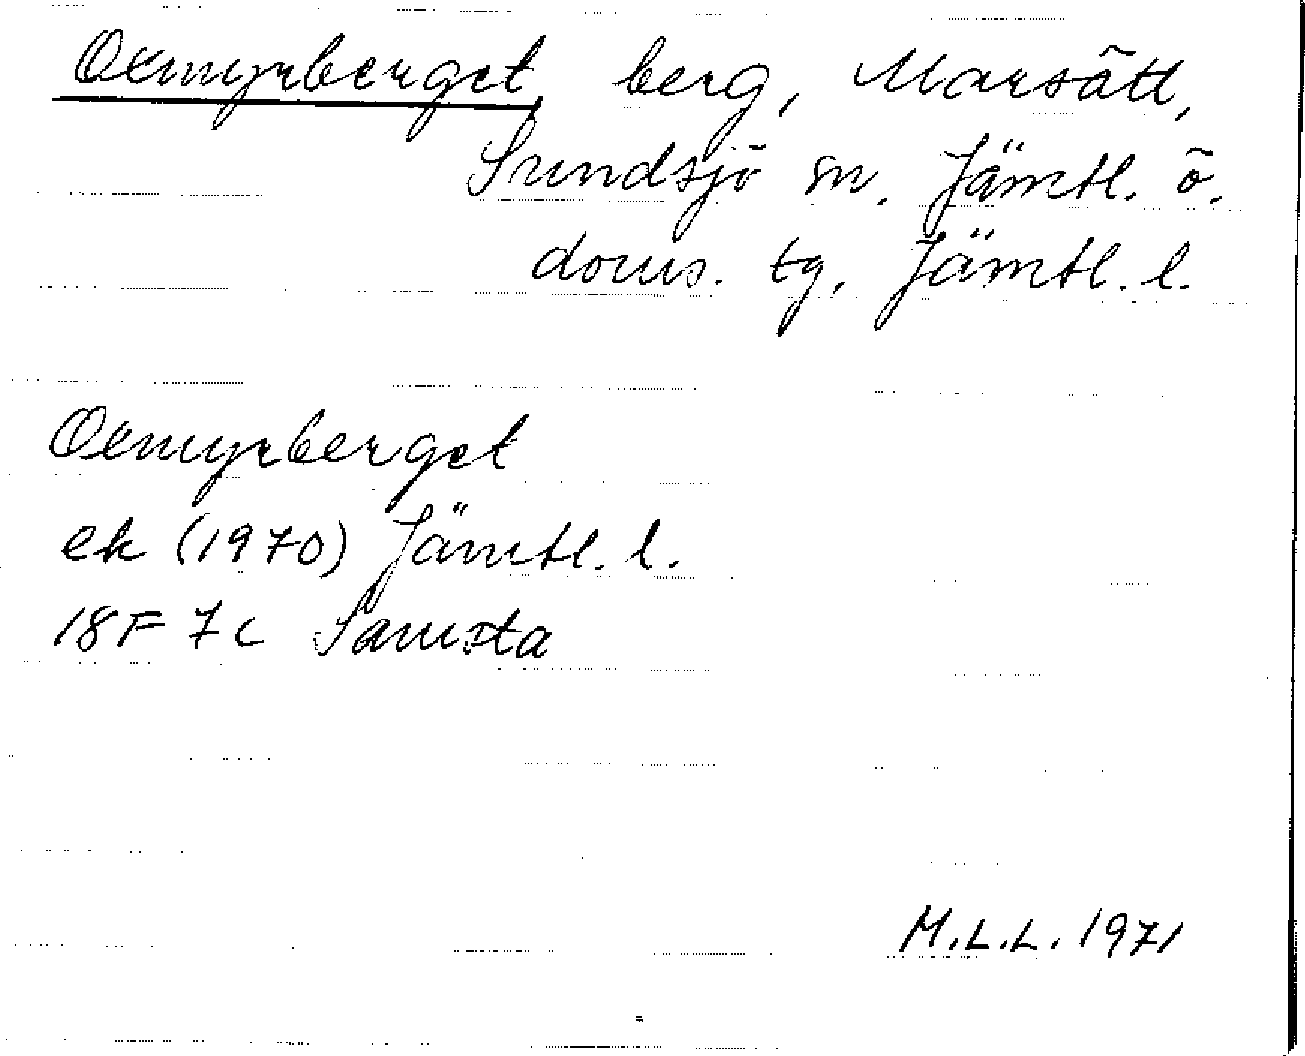 Oxmyrberget, berg, Marsätt,
Sundsjö sn. Jämtl. ö.
doms. tg, Jämtl. l.
Oxmyrberget
ek (1970) Jämtl. l.
18F 7c Samsta
M.L.L. 1971